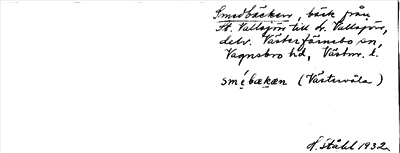 Smedbäcken, bäck från
St. Vallsjön till L. Vallsjön,
delv. Västerfärnebo sn,
Vagnsbro hd, Västm. l.
smébækæn (Västervåla)
H. Ståhl 1932